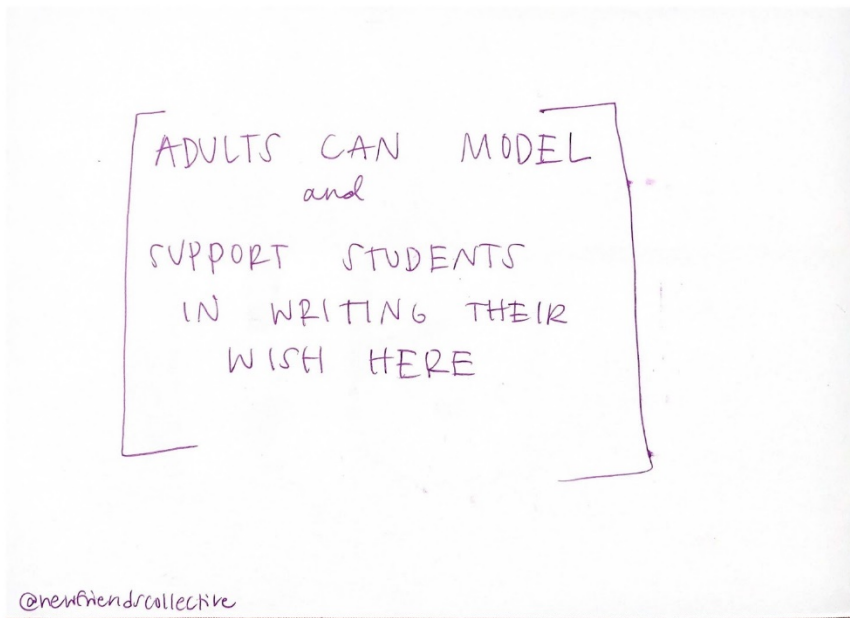 ADULTS CAN MODEL
and
SUPPORT STUDENTS
IN WRITING THEIR
WISH HERE
@newfriendscollective